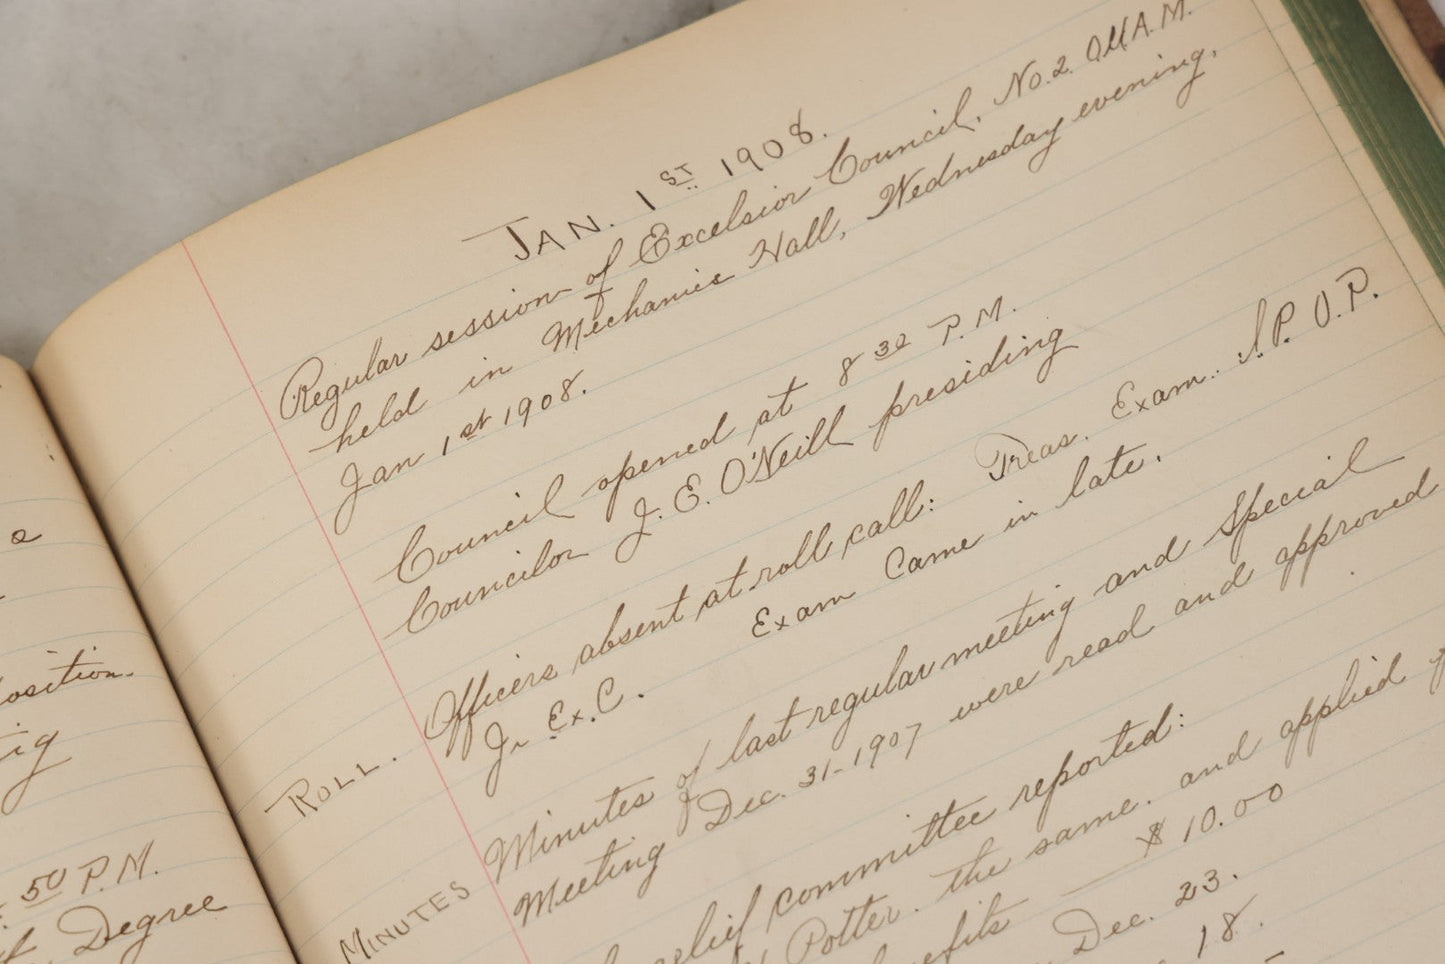 a
osition.
ig
50 P.M.
Degree
JAN. 1ST 1908.
Regular session of Excelsior Council, No. 2. O.U.A.M.
held in Mechanic Hall, Wednesday evening,
Jan 1st 1908.
Council opened at 8 30 P.M.
Councilor J. E. O'Neill presiding
ROLL. Officers absent at roll call: Treas. Exam. I.P. O.P.
Jr Ex.C. Exam Came in late.
MINUTES Minutes of last regular meeting and Special
Meeting Dec. 31-1907 were read and approved
elief committee reported:
Potter. the same. and applied f
efits $ 10.00
Dec. 23.
18.